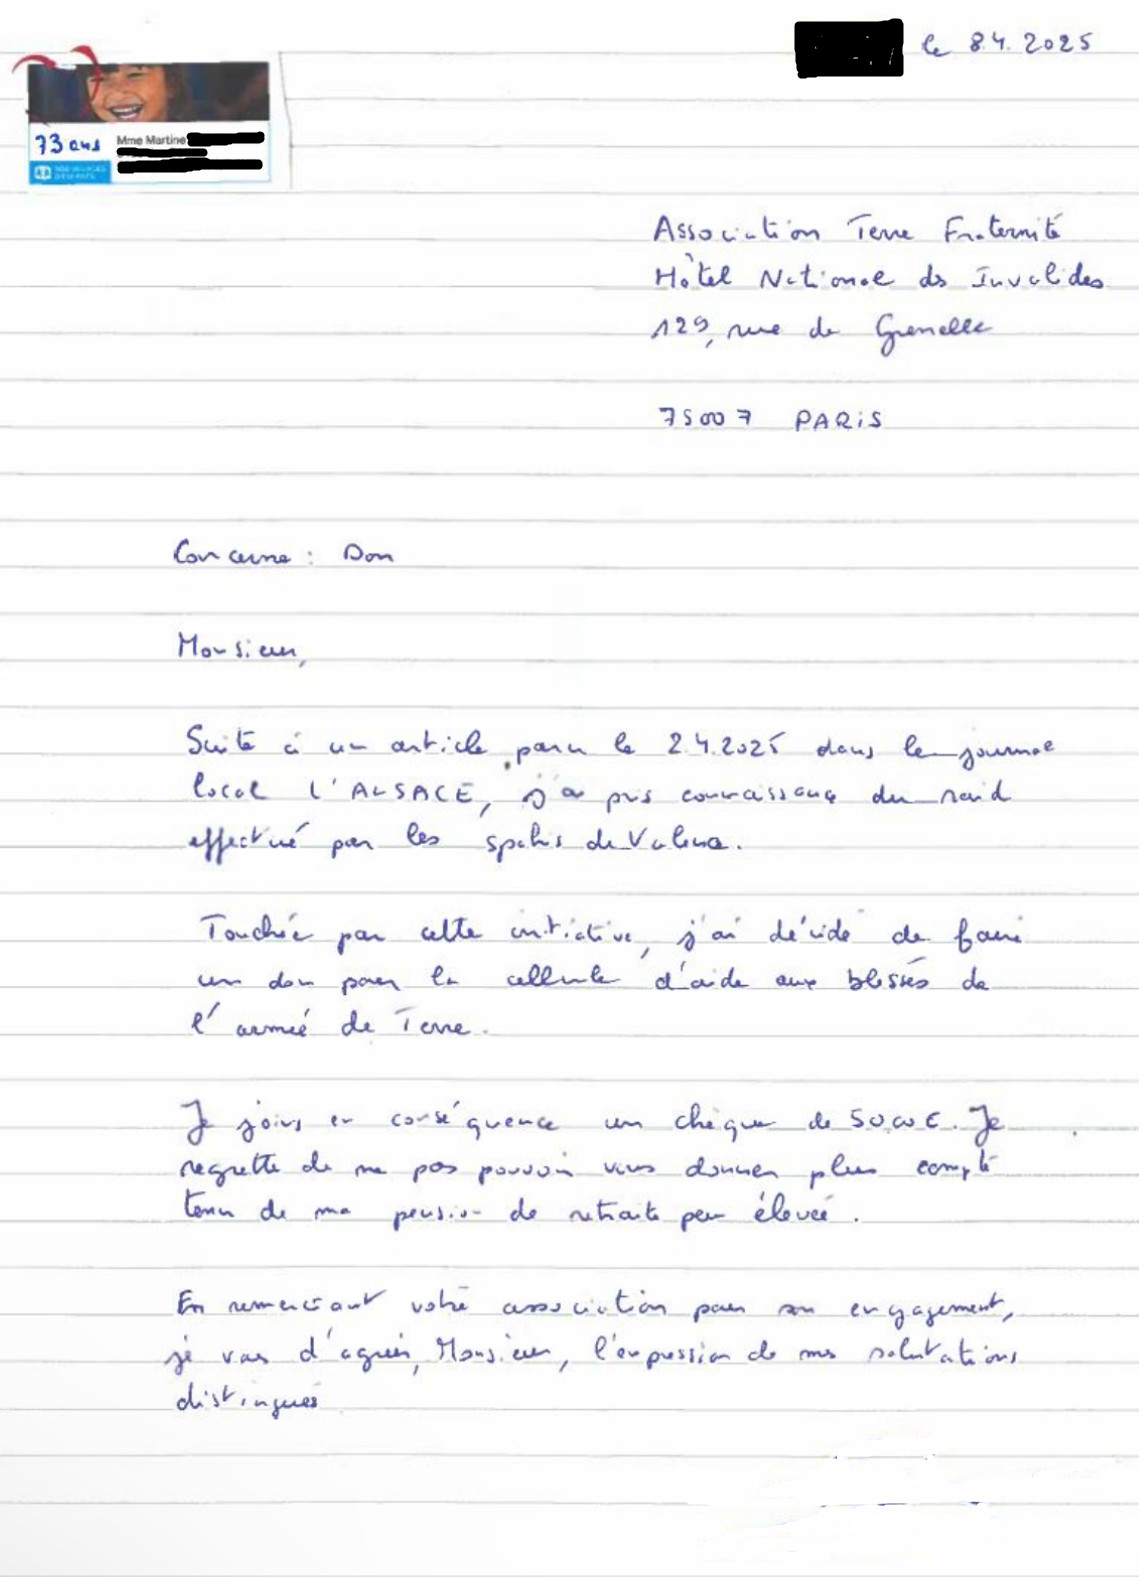 le 8.4.2025
73 ans
Mme Martine
SOS VILLAGES
D'ENFANTS
Association Terre Fraternité
Hôtel National des Invalides
129, rue de Grenelle
75007 PARIS
Concerne : Don
Monsieur,
Suite à un article paru le 2.4.2025 dans le journal
local L'ALSACE, j'ai pris connaissance du raid
effectué par les spahis de Valence.
Touchée par cette initiative, j'ai décidé de faire
un don pour la cellule d'aide aux blessés de
l'armée de Terre.
Je joins en conséquence un chèque de 50,00 €. Je
regrette de ne pas pouvoir vous donner plus compte
tenu de ma pension de retraite peu élevée.
En remerciant votre association pour son engagement,
je vous d'agréer, Monsieur, l'expression de mes salutations
distinguées